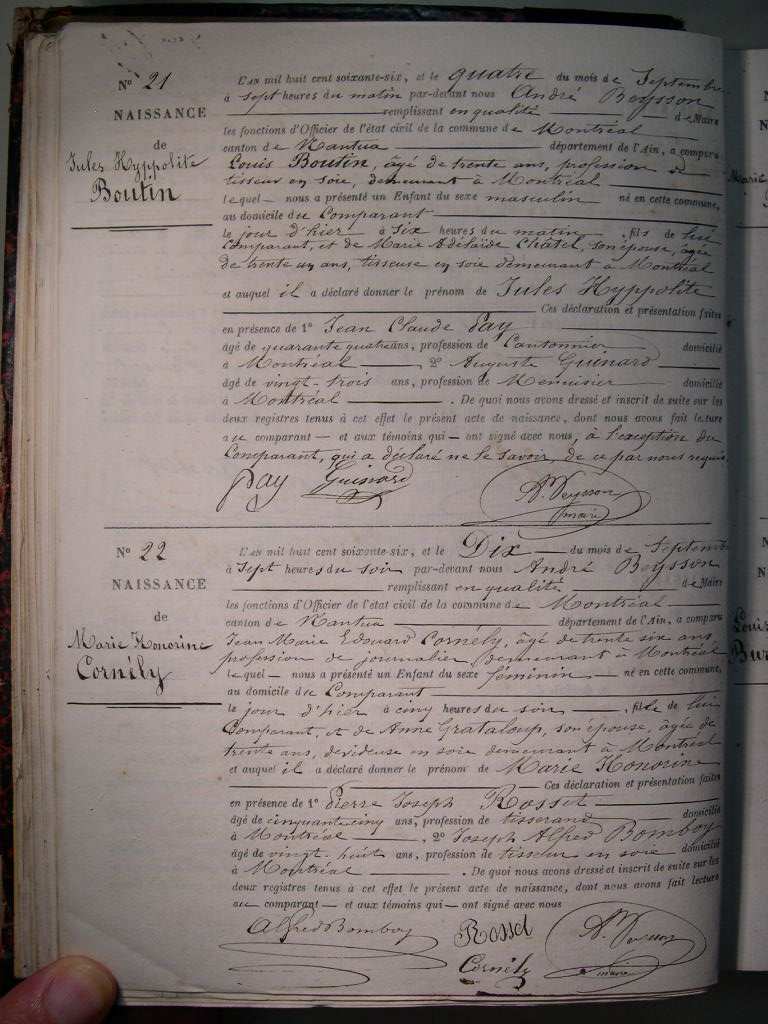 N° 21
NAISSANCE
de
Jules Hyppolite
Boutin
L'an mil huit cent soixante-six, et le quatre du mois de Septembre
à sept heures du matin par-devant nous André Beysson
remplissant en qualité de Maire
les fonctions d'Officier de l'état civil de la commune de Montréal
canton de Nantua département de l'Ain, a comparu
Louis Boutin, âgé de trente ans, profession de
tisseur en soie, demeurant à Montréal
lequel nous a présenté un Enfant du sexe masculin né en cette commune,
au domicile du Comparant
le jour d'hier à six heures du matin, fils de lui
Comparant, et de Marie Adélaïde Chatel, son épouse, âgée
de trente un ans, tisseuse en soie demeurant à Montréal
et auquel il a déclaré donner le prénom de Jules Hyppolite
Ces déclaration et présentation faites
en présence de 1° Jean Claude Pay
âgé de quarante quatre ans, profession de Cantonnier domicilié
à Montréal, 2° Auguste Guinard
âgé de vingt-trois ans, profession de Menuisier domicilié
à Montréal. De quoi nous avons dressé et inscrit de suite sur les
deux registres tenus à cet effet le présent acte de naissance, dont nous avons fait lecture
au comparant et aux témoins qui ont signé avec nous, à l'exception du
Comparant, qui a déclaré ne le savoir, de ce par nous requis
Pay Guinard A. Beysson
maire
N° 22
NAISSANCE
de
Marie Honorine
Cornély
L'an mil huit cent soixante-six, et le Dix du mois de Septembre
à Sept heures du soir par-devant nous André Beysson
remplissant en qualité de Maire
les fonctions d'Officier de l'état civil de la commune de Montréal
canton de Nantua département de l'Ain, a comparu
Jean Marie Edouard Cornély, âgé de trente six ans
profession de journalier, demeurant à Montréal
lequel nous a présenté un Enfant du sexe féminin né en cette commune,
au domicile du Comparant
le jour d'hier à cinq heures du soir, fille de lui
Comparant, et de Anne Grataloup, son épouse, âgée de
trente ans, dévideuse en soie demeurant à Montréal
et auquel il a déclaré donner le prénom de Marie Honorine
Ces déclaration et présentation faites
en présence de 1° Pierre Joseph Rosset
âgé de cinquante cinq ans, profession de tisserand domicilié
à Montréal, 2° Joseph Alfred Bomboy
âgé de vingt-huit ans, profession de tisseur en soie domicilié
à Montréal. De quoi nous avons dressé et inscrit de suite sur les
deux registres tenus à cet effet le présent acte de naissance, dont nous avons fait lecture
au comparant et aux témoins qui ont signé avec nous
Alfred Bomboy Rosset A. Beysson
Cornély maire
Marie
Louis
Bur